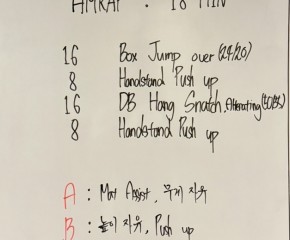 AMRAP : 18 MIN
16 Box Jump over (24/20)
8 Handstand Push up
16 DB Hang Snatch, Alternating
8 Handstand Push up
A : Mat Assist, 무게 자유
B : 높이 자유, Push up